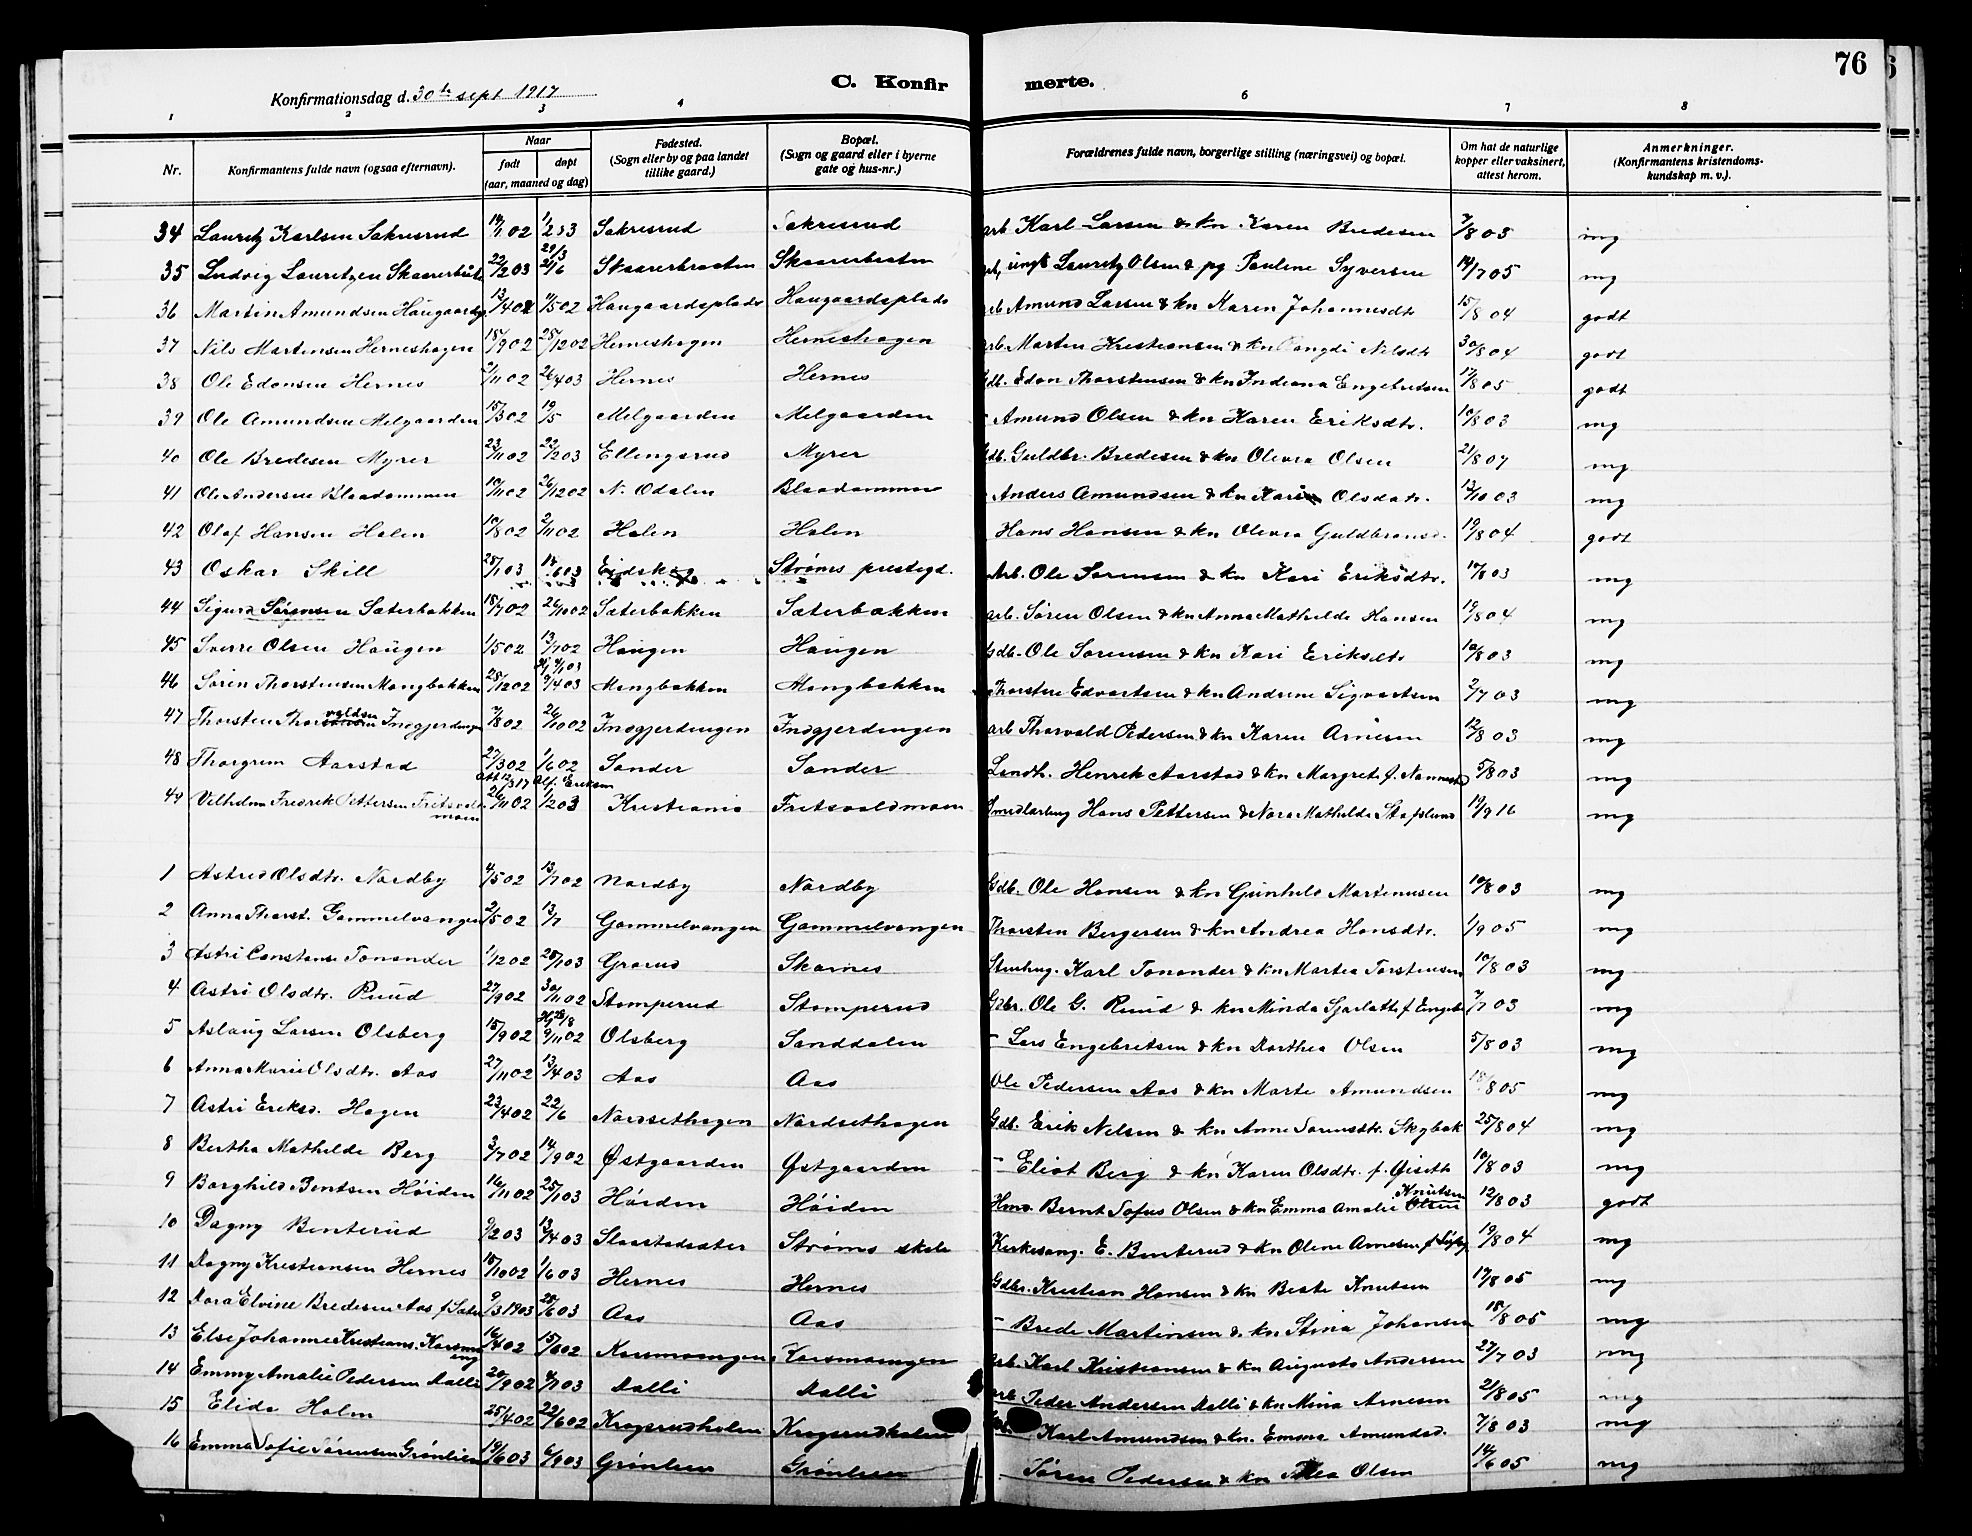 76
C. Konfir merte.
Konfirmationsdag d. 30te sept 1917
1 2 3 4 6 7 8
Nr. Konfirmantens fulde navn (ogsaa efternavn). Naar født døpt (aar, maaned og dag) Fødested. (Sogn eller by og paa landet tillike gaard.) Bopæl. (Sogn og gaard eller i byerne gate og hus-nr.) Forældrenes fulde navn, borgerlige stilling (næringsvei) og bopæl. Om hat de naturlige kopper eller vaksinert, attest herom. Anmerkninger. (Konfirmantens kristendomskundskap m. v.).
34 Lauritz Karlsen Sakresrud 14/1 02 1/2 03 Sakresrud Sakresrud arb Karl Larsen & kn. Karen Bredesen 7/8 03 mg
35 Ludvig Lauritzen 22/2 03 21/6 Skaarerbraaten Skaarerbraaten ungk Lauritz Olsen & pg Pauline Syversen 14/7 05 mg
36 Martin Amundsen 13/4 02 4/5 02 Haugaardsplads Haugaardsplads arb Amund Larsen & kn Karen Johannesdtr 15/8 04 godt
37 Nils Martensen Herneshagen 18/9 02 28/12 02 Herneshagen Herneshagen arb. Marten Kristiansen & kn Nilsdtr 30/8 04 godt
38 Ole Edonsen Hernes 2/11 02 26/4 03 Hernes Hernes Gdb. Edon Thorstensen & kn Indiana Engebretsen 17/8 05 godt
39 Ole Amundsen Melgaarden 15/3 02 19/5 Melgaarden Melgaarden - Amund Olsen & kn Karen Eriksdtr. 10/8 03 mg
40 Ole Bredesen Myrer 23/11 02 22/2 03 Ellingsrud Myrer Gdb. Guldbr. Bredesen & kn Olevia Olsen 21/8 07 mg
41 Ole Andersen Blaadammen 10/11 02 26/12 02 N. Odalen Blaadammen - Anders Amundsen & kn Kari Olsdatr. 13/10 03 mg
42 Olaf Hansen Holen 10/8 02 2/11 02 Holen Holen Hans Hansen & kn Olevia Guldbransd. 19/8 04 godt
43 Oskar Skill 28/1 03 14/6 03 Eidskog Strøms prestegd. Arb. Ole Sørensen & kn Kari Eriksdtr. 10/8 03 mg
44 Sigurd Sørensen Sæterbakken 18/7 02 26/10 02 Sæterbakken Sæterbakken arb. Søren Olsen & kn Anna Mathilde Hansen 19/8 04 mg
45 Sverre Olsen Haugen 1/5 02 13/7 02 Haugen Haugen Gdb. Ole Sørensen & kn Kari Eriksdtr 10/8 03 mg
46 Søren Thorstensen Mangbakken 28/12 02 9/4 03 Mangbakken Mangbakken Thorsten Edvartsen & kn Andrine Sigvartsen 2/7 03 mg
47 Thorsten Thorvaldsen Indgjerdingen 7/8 02 26/10 02 Indgjerdingen Indgjerdingen arb Thorvald Pedersen & kn Karen Arnesen 12/8 03 mg
48 Thorgrim Aarstad 27/3 02 1/6 02 Sander Sander Landh. Henrik Aarstad & kn Margrete f. Nannestad 5/8 03 mg
49 Vilhelm Fredrik Pettersen Fritsvoldmoen 26/11 02 1/2 03 Kristiania Fritsvoldmoen Hans Pettersen & Nora Mathilde Stafslund 19/9 16 mg
1 Astrid Olsdtr. Nordby 4/5 02 13/7 02 Nordby Nordby Gdb. Ole Hansen & kn Gunhild Martenusen 10/8 03 mg
2 Anna Thorst. Gammelvangen 2/5 02 13/7 Gammelvangen Gammelvangen Thorsten Bergersen & kn Andrea Hansdtr. 1/9 05 mg
3 Astri Constanse Tonander 1/12 02 28/1 03 Grorud Skarnes Stenhug. Karl Tonander & kn Martea Torstensen 10/8 03 mg
4 Astri Olsdtr. Ruud 27/9 02 30/11 02 Stomperud Stomperud Gdbr. Ole G. Ruud & kn Minda Sjarlotte f. Engebr 7/7 03 mg
5 Aslaug Larsen Olsberg 15/9 02 9/11 02 Olsberg Sanddalen - Lars Engebretsen & kn Dorthea Olsen 5/8 03 mg
6 Anna Marie Olsdtr. Aas 27/11 02 13/4 03 Aas Aas Ole Pedersen Aas & kn Marte Amundsen 18/8 05 mg
7 Astri Eriksd. Hagen 23/4 02 22/6 Nordsethagen Nordsethagen Gdb. Erik Nelsen & kn Anne Sørensdtr. Skybak 25/8 04 mg
8 Bertha Mathilde Berg 3/7 02 14/9 02 Østgaarden Østgaarden - Eliot Berg & kn Karen Olsdtr. f. Giseth 10/8 03 mg
9 Borghild Bentsen Høiden 16/11 02 25/1 03 Høiden Høiden Hmd. Bernt Sofus Olsen & kn Emma Amalie Knutsen Olsen 12/8 03 godt
10 Dagny Benterud 9/2 03 13/4 03 Slaastadsæter Strøms skole Kirkesang. E. Benterud & kn Oline Arnesen 19/8 04 mg
11 Dagny Kristiansen Hernes 18/10 02 1/6 03 Hernes Hernes Gdbr. Kristian Hansen & kn Beate Knutsen 17/8 05 mg
12 Dora Elvine Bredesen Aas 9/3 1903 28/6 03 Aas Aas - Brede Martinsen & kn. Stina Johansen 18/8 05 mg
13 Else Johanne Kristians. 16/4 02 15/6 02 Korsmoengen Korsmoengen arb. Karl Kristiansen & kn Augusta Andersen 27/7 03 mg
14 Emmy Amalie Pedersen Dalli 20/9 02 4/1 03 Dalli Dalli arb Peder Andersen Dalli & kn Mina Arnesen 21/8 05 mg
15 Elida Holm 25/4 02 22/6 02 Krogsrudholm Krogsrudholm Karl Amundsen & kn. Emma Amundsd. 7/8 03 mg
16 Emma Sofie Sørensen Grønlien 19/6 03 6/9 03 Grønlien Grønlien Søren Pedersen & kn Thea Olsen 14/6 05 mg